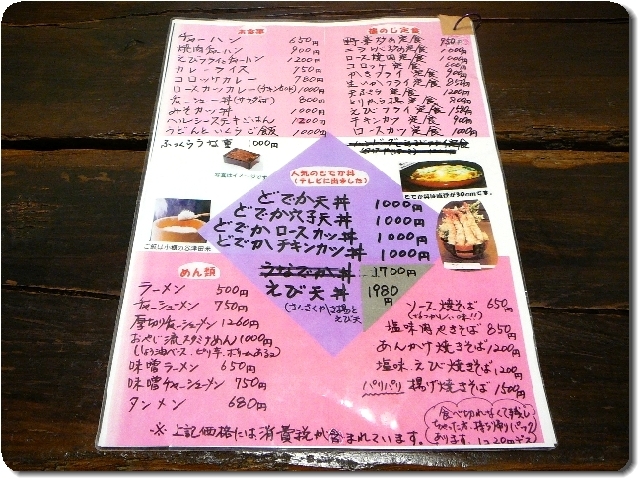 お食事
チャーハン 650円
焼肉チャーハン 900円
えびフライとチャーハン 1200円
カレーライス 750円
コロッケカレー 780円
ロースカツカレー 1000円
チャーシュー丼 800円
みそカツ丼 1000円
ヘルシーステーキごはん 1200円
うどんといくらご飯 1000円
ふっくらうな重
写真はイメージです
定食
野菜炒め定食 950円
ニラレバ炒め定食 1000円
ロース焼肉定食 1000円
コロッケ定食
かきフライ定食 900円
生いかフライ定食 850円
天ぷら定食 1200円
えびフライ定食
チキンカツ定食 900円
ロースカツ定食 1000円
人気のどでか丼
(テレビに出ました)
どでか天丼 1000円
どでか穴子天丼 1000円
どでかロースカツ丼 1000円
どでかチキンカツ丼 1000円
うなでか丼 1700円
えび天丼 1980円
どでか丼は直径が30cmです。
めん類
ラーメン 500円
チャーシューメン 750円
厚切りチャーシューメン 1260円
おやじ流スタミナめん 1000円
味噌ラーメン 650円
味噌チャーシューメン 750円
タンメン 680円
ソース焼そば 650円
塩味肉やきそば 850円
あんかけ焼きそば 1200円
塩味えび焼きそば 1200円
パリパリ揚げ焼きそば 1500円
食べ切れなくて残し
ちゃった方、持ち帰りパック
あります。1コ20円デス
※上記価格には消費税が含まれています。